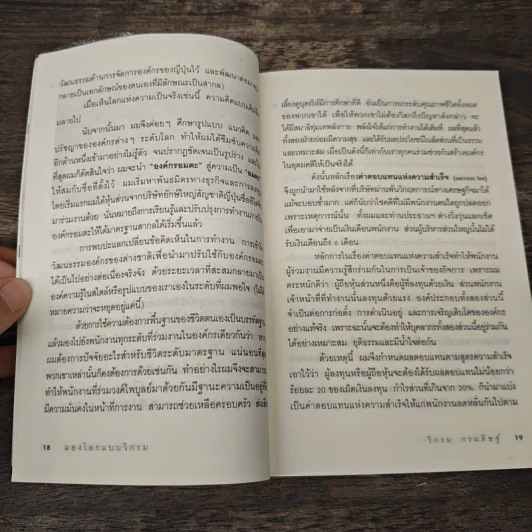 วัฒนธรรมด้านการจัดการองค์กรของญี่ปุ่นไว้ และพัฒนาต่อมาจน
กลายเป็นเอกลักษณ์ของตนเองที่มีลักษณะเป็นสากล
เมื่อเห็นโลกแห่งความเป็นจริงเช่นนี้ ความคิดแบบเดิม
มลายไป
นับจากนั้นมา ผมจึงค่อยๆ ศึกษารูปแบบ แนวคิด
ปรัชญาขององค์กรต่างๆ ระดับโลก ทำให้ผมได้ซึมซับความ
อีกด้านหนึ่งเข้ามาอย่างไม่รู้ตัว จนปรากฏชัดเจนเป็นรูปร่าง และ
ที่สุดผมก็ตัดสินใจว่า ผมจะนำ "องค์กรอมตะ" สู่ความเป็น
ให้สมกับชื่อที่ตั้งไว้ ผมเริ่มหาพันธมิตรทางธุรกิจและการลงทุน
โดยเริ่มแรกผมได้หุ้นส่วนจากบริษัทยักษ์ใหญ่สัญชาติญี่ปุ่นชื่อ
มาร่วมงานด้วย นั่นหมายถึงการเรียนรู้และปรับปรุงการทำงานภายใน
องค์กรอมตะให้ได้มาตรฐานสากลได้เริ่มขึ้นแล้ว
การพบปะแลกเปลี่ยนข้อคิดเห็นในการทำงาน การเข้าใจ
วัฒนธรรมองค์กรของต่างชาติเพื่อนำมาปรับใช้กับองค์กรอมตะ
ได้เป็นไปอย่างต่อเนื่องจริงจัง ด้วยระยะเวลาที่สะสมกลายมาเป็น
องค์ความรู้ในสไตล์หรือรูปแบบของเราเองในระดับที่ผมพอใจ (ไม่ได้
หมายความว่าจะหยุดอยู่แค่นี้)
ด้วยการใช้ความต้องการพื้นฐานของชีวิตตนเองเป็นบรรทัดฐาน
แล้วมองไปยังพนักงานทุกระดับที่ร่วมงานในองค์กรเดียวกันว่า หาก
ผมต้องการมีปัจจัยอะไรสำหรับชีวิตระดับมาตรฐาน แน่นอนที่สุด
พวกเขาเหล่านั้นก็คงต้องการด้วยเช่นกัน ทำอย่างไรผมจึงจะสามารถ
ทำให้พนักงานที่ร่วมวงศ์ไพบูลย์มาด้วยกันมีฐานะความเป็นอยู่ที่ดี
มีความมั่นคงในหน้าที่การงาน สามารถช่วยเหลือครอบครัว ส่งเสีย
18 มองโลกแบบวิกรม
เลี้ยงดูบุตรให้มีการศึกษาที่ดี อันเป็นการยกระดับคุณภาพชีวิตทั้งหมด
ของพวกเขาได้ เพื่อให้พวกเขาไม่ต้องวิตกถึงปัญหาดังกล่าว จะ
ได้มีสมาธิทุ่มเทพลังกาย พลังใจให้แก่การทำงานได้เต็มที่ ผลที่สุดแล้ว
ทั้งสองฝ่ายย่อมมีความสุข และได้รับผลประโยชน์ในสัดส่วนที่เป็นธรรม
และเหมาะสม เมื่อเป็นดังนี้ก็เท่ากับเราทุกคนรวมช่วยกันสร้างองค์กร
ในอุดมคติให้เป็นจริงได้
ดังนั้นหลักเรื่องค่าตอบแทนแห่งความสำเร็จ (success fee)
จึงถูกนำมาใช้หลังจากที่บริษัทผ่านพ้นวิกฤตการณ์ทางเศรษฐกิจมาได้
แม้จะบอบช้ำมาก แต่ก็นับว่าโชคดีที่ไม่มีพนักงานคนใดถูกปลดออก
เพราะเหตุการณ์นั้น ทั้งผมและท่านประธานฯ ต่างวิ่งวุ่นแลกเช็ค
เพื่อเอามาจ่ายเป็นเงินเดือนพนักงาน ส่วนผู้บริหารส่วนใหญ่นั้นไม่ได้
รับเงินเดือนถึง ๖ เดือน
หลักการในเรื่องค่าตอบแทนแห่งความสำเร็จทำให้พนักงาน
ผู้ร่วมงานมีความรู้สึกร่วมกันในการเป็นเจ้าของกิจการ เพราะผม
ตระหนักดีว่า ผู้ถือหุ้นส่วนหนึ่งคือผู้ที่ลงทุนด้วยเงิน ส่วนพนักงาน
เจ้าหน้าที่ที่ทำงานนั้นลงทุนด้วยแรง องค์ประกอบทั้งสองส่วนนี้
จำเป็นต่อการก่อตั้ง การดำเนินอยู่ และการเจริญเติบโตขององค์กร
อย่างแท้จริง เพราะฉะนั้นจะต้องทำให้บุคลากรทั้งสองส่วนนี้อยู่ร่วมกัน
ได้อย่างเหมาะสม ยุติธรรมและมีน้ำใจต่อกัน
ด้วยเหตุนี้ ผมจึงกำหนดผลตอบแทนตามสูตรความสำเร็จ
เอาไว้ว่า ผู้ลงทุนหรือผู้ถือหุ้นจะต้องได้รับผลตอบแทนไม่น้อยกว่า
ร้อยละ 20 ของเม็ดเงินลงทุน กำไรส่วนที่เกินจาก 20% ก็นำมาแบ่ง
เป็นค่าตอบแทนแห่งความสำเร็จให้แก่พนักงานลดหลั่นกันไปตาม
วิกรม กรมดิษฐ์ 19